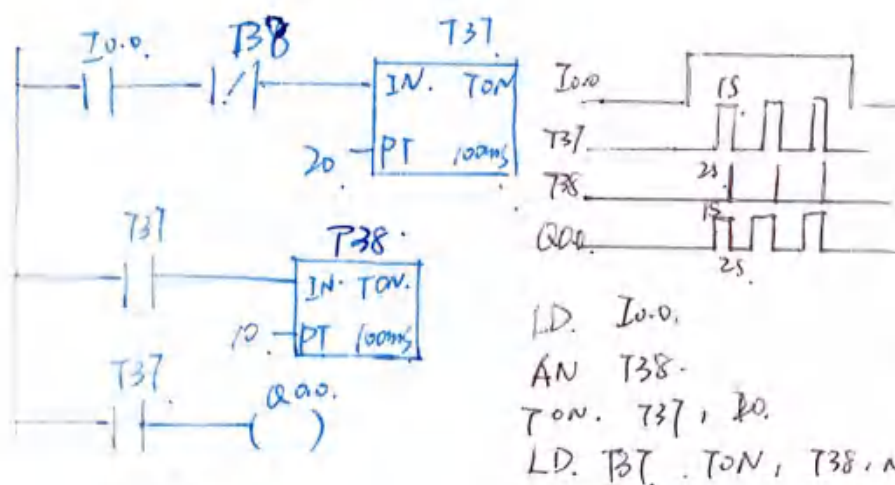 I0.0. T38 T37
IN. TON
20 PT 100ms
T37 T38.
IN. TON.
10. PT 100ms
T37 Q0.0.
( )
I0.0 1S.
T37
T38 2S.
Q0.0. 1S
2S.
LD. I0.0.
AN T38.
TON. T37,
LD. T37. TON, T38,